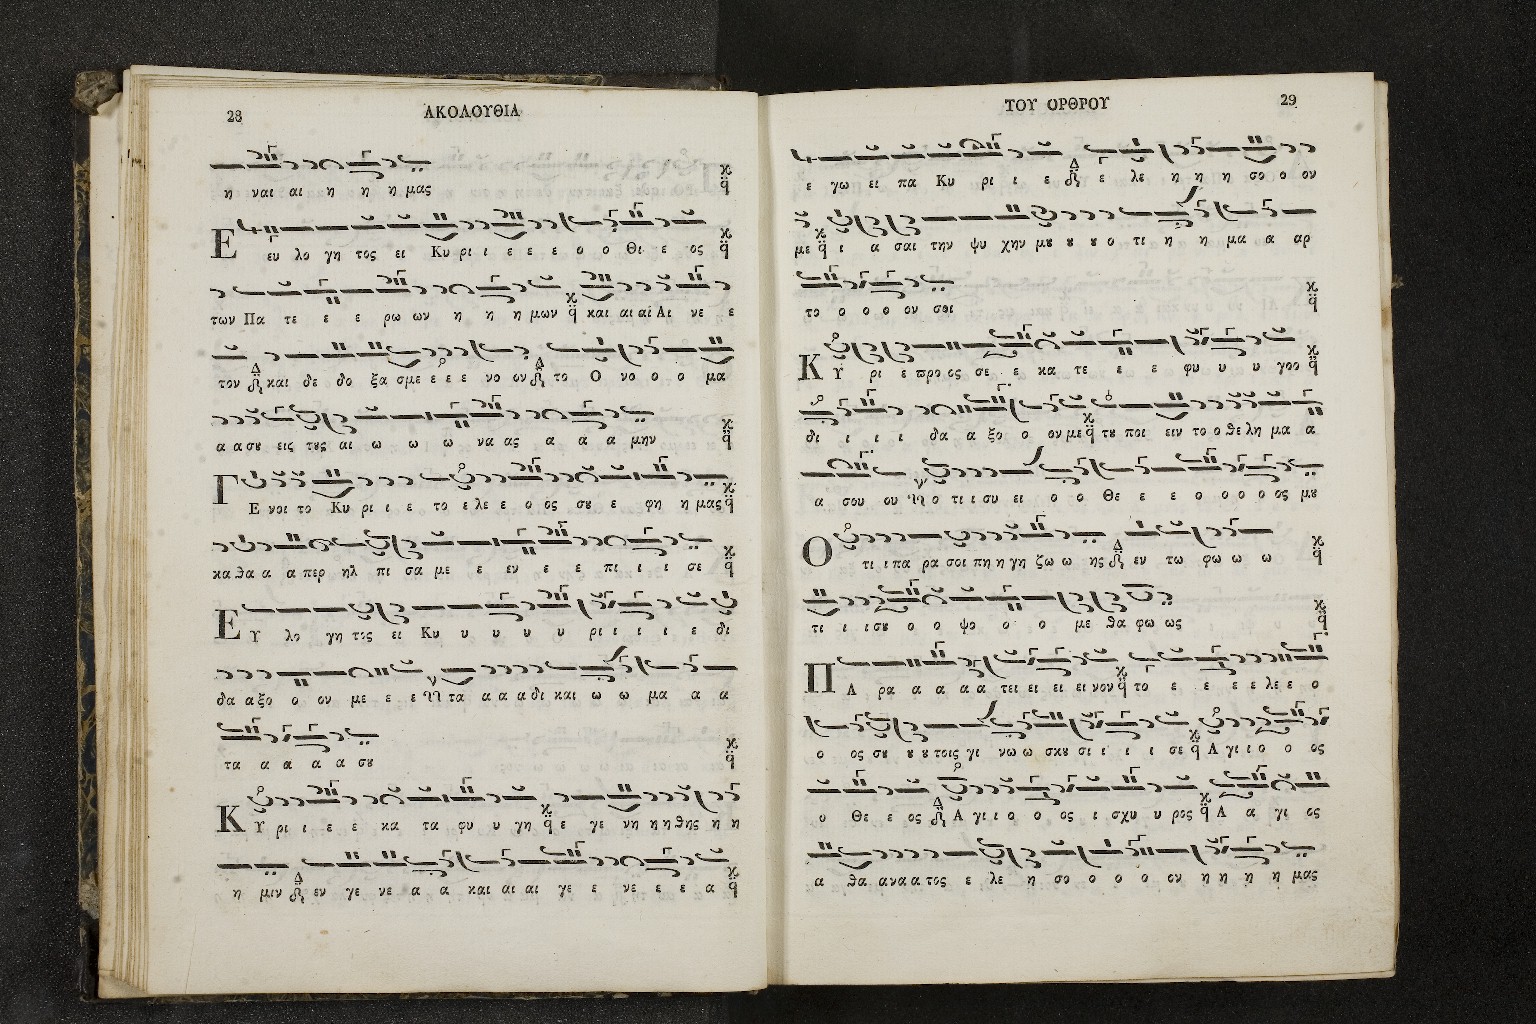 28
ΑΚΟΛΟΥΘΙΑ
η ναι αι η η η μας
Ε ευ λο γη τος ει Κυ ρι ι ε ε ε ο ο Θι ε ος
των Πα τε ε ε ρω ων η η η μων και αι αί Αι νε ε
τον και δε δο ξα σμε ε ε ε νο ον το Ο νο ο ο μα
α α σου εις τȣς αι ω ω ω να ας α α α μην
Γ Ε νοι το Κυ ρι ι ε το ε λε ε ο ος σȣ ε φη η μας
κα θα α α περ ηλ πι σα με ε εν ε ε πι ι ι σε
Ε Υ λο γη τος ει Κυ υ υ υ υ ρι ι ι ι ε δι
δα α ξο ο ον με ε ε τα α α α δι και ω ω μα α α
τα α α α α σȣ
Κ Υ ρι ι ε ε κα τα φυ υ γη ε γε νη η η θης η η
η μιν εν γε νε α α και αι αι γε ε νε ε ε α
ΤΟΥ ΟΡΘΡΟΥ
29
ε γω ει πα Κυ ρι ι ε ε λε η η η σο ο ον
με ι α σαι την ψυ χην μȣ ȣ ȣ ο τι η η μα α αρ
το ο ο ο ον σοι
Κ Υ ρι ε προ ος σε ε κα τε ε ε φυ υ υ γοο
δι ι ι ι δα α ξο ο ον με τȣ ποι ειν το ο θε λη μα α
α σου ου ο τι ι συ ει ο ο Θε ε ε ο ο ο ο ος μȣ
Ο τι ι πα ρα σοι πη η γη ζω ω ης εν τω φω ω ω
τι ι ι σȣ ο ο ψο ο ο με θα φω ως
Π Α ρα α α α α τει ει ει ει νον το ε ε ε ε λε ε ο
ο ος σȣ ȣ ȣ τοις γι νω ω σκȣ σι ι ι ι σε Α γι ι ο ο ος
ο Θε ε ος Α γι ι ο ο ος ι σχυ υ ρος Α α γι ος
α θα α να α τος ε λε η σο ο ο ο ον η η η η μας